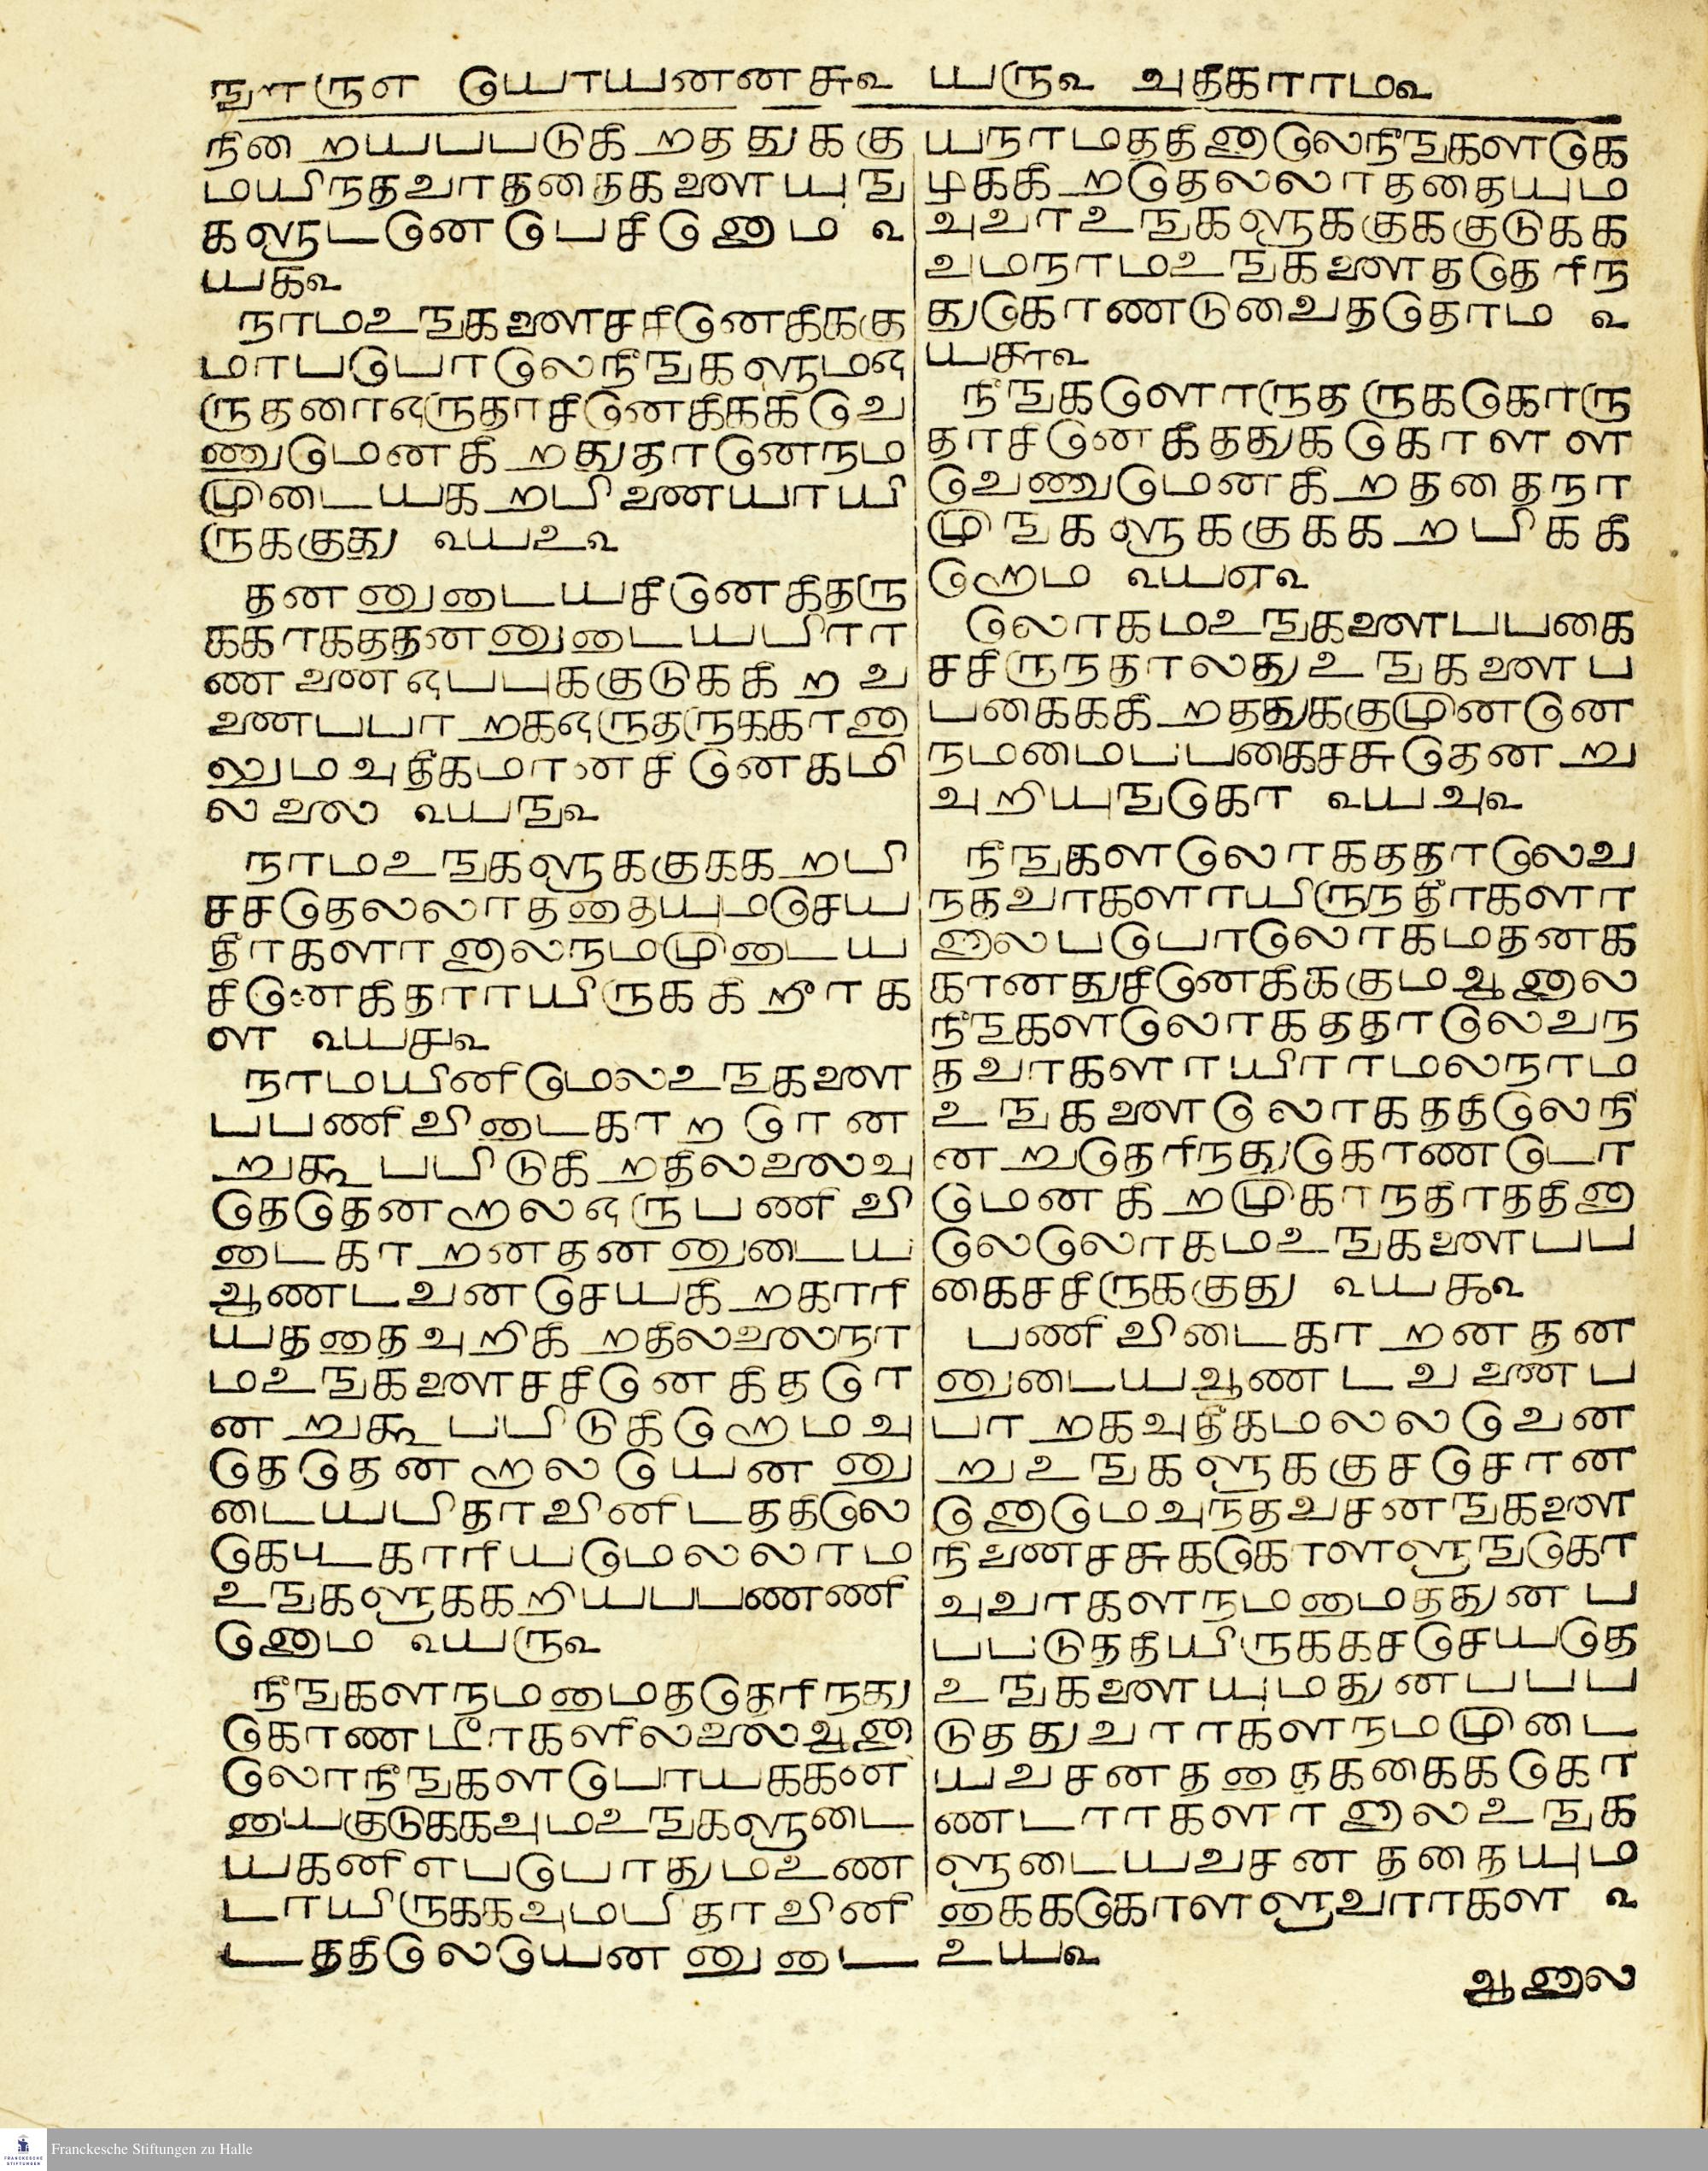 ௩௱௫௭ யோயனனசு௨ ௰௫௨ அதிகாரம௨
நிறையபபடுகிறததுககு
மயிநதவாததைகளையுங
களுடனேபேசினோம ௨
௰௧௨
நாமஉஙகளைசசினேகிககு
மாபபோலேநீஙகளுமஒ
ருதரைஒருதாசினேகிககவே
ணுமெனகிறதுதானேநம
முடையகறபினையாயி
ருககுது ௨௰௨௨
தனனுடையசினேகிதரு
ககாகததனனுடையபிரா
ணனைஒபபுககுடுககிறவ
னைபபாறகஒருதருககானா
லுமஅதிகமானசினேகமி
லலை ௨௰௩௨
நாமஉஙகளுககுககறபி
சசதெலலாததையுமசெய
தீாகளானாலநமமுடைய
சினேகிதராயிருககிறீாக
ள ௨௰௪௨
நாமயினிமேலஉஙகளை
பபணிவிடைகாறரென
றுகூபபிடுகிறதிலலைஅ
தேதெனறாலஒருபணிவி
டைகாறனதனனுடைய
ஆணடவனசெயகிறகாரி
யததைஅறிகிறதிலலைநா
மஉஙகளைசசினேகிதரெ
னறுகூபபிடுகிறோமஅ
தேதெனறாலயெனனு
டையபிதாவினிடததிலே
கேடடகாரியமெலலாம
உஙகளுககறியபபணணி
னோம ௨௰௫௨
நீஙகளநமமைததெரிநது
கொணடீாகளிலலைஆனா
லோநீஙகளபோயககனி
யைகுடுககஅமஉஙகளுடை
யகனிஎபபோதுமஉண
டாயிருககஅமபிதாவினி
டததிலேயெனனுடை
யநாமததினாலேநீஙகளகே
ழககிறதெலலாததையும
அவாஉஙகளுககுககுடுகக
வமநாமஉஙகளைததெரிந
துகொணடுவைததோம ௨
௰௬௨
நீஙகளொருதருககொரு
தாசினேகீததுககொளள
வேணுமெனகிறததைநா
முஙகளுககுககறபிககி
றோம ௨௰௭௨
லோகமஉஙகளைபபகை
சசிருநதாலதுஉஙகளைப
பகைககிறததுககுமுனனே
நமமைபபகைசசுதெனறு
அறியுஙகோ ௨௰௮௨
நீஙகளலோகததாலேவ
நதவாகளாயிருநதீாகளா
னாலபபோலோகமதனக
கானதுசினேகிககுமஆனால
நீஙகளலோகததாலேவந
தவாகளாயிராமலநாம
உஙகளைலோகததிலேநி
னறுதெரிநதுகொணடொ
மெனகிறமுகாநதிரததினா
லேலோகமஉஙகளைபப
கைசசிருககுது ௨௰௯௨
பணிவிடைகாறனதன
னுடையஆணடவனைப
பாறகஅதிகமலலவென
றுஉஙகளுககுசசொன
னோமேஅநதவசனஙகளை
நினைசசுககொளளுஙகோ
அவாகளநமமைததுனப
பபடுததீயிருககசசெயதே
உஙகளையுமதுனபபப
டுததுவாாகளநமமுடை
யவசனததைககைககொ
ணடாாகளானாலஉஙக
ளுடையவசனததையும
கைககொளளுவாாகள ௨
௨௰௨
ஆனால
Franckesche Stiftungen zu Halle